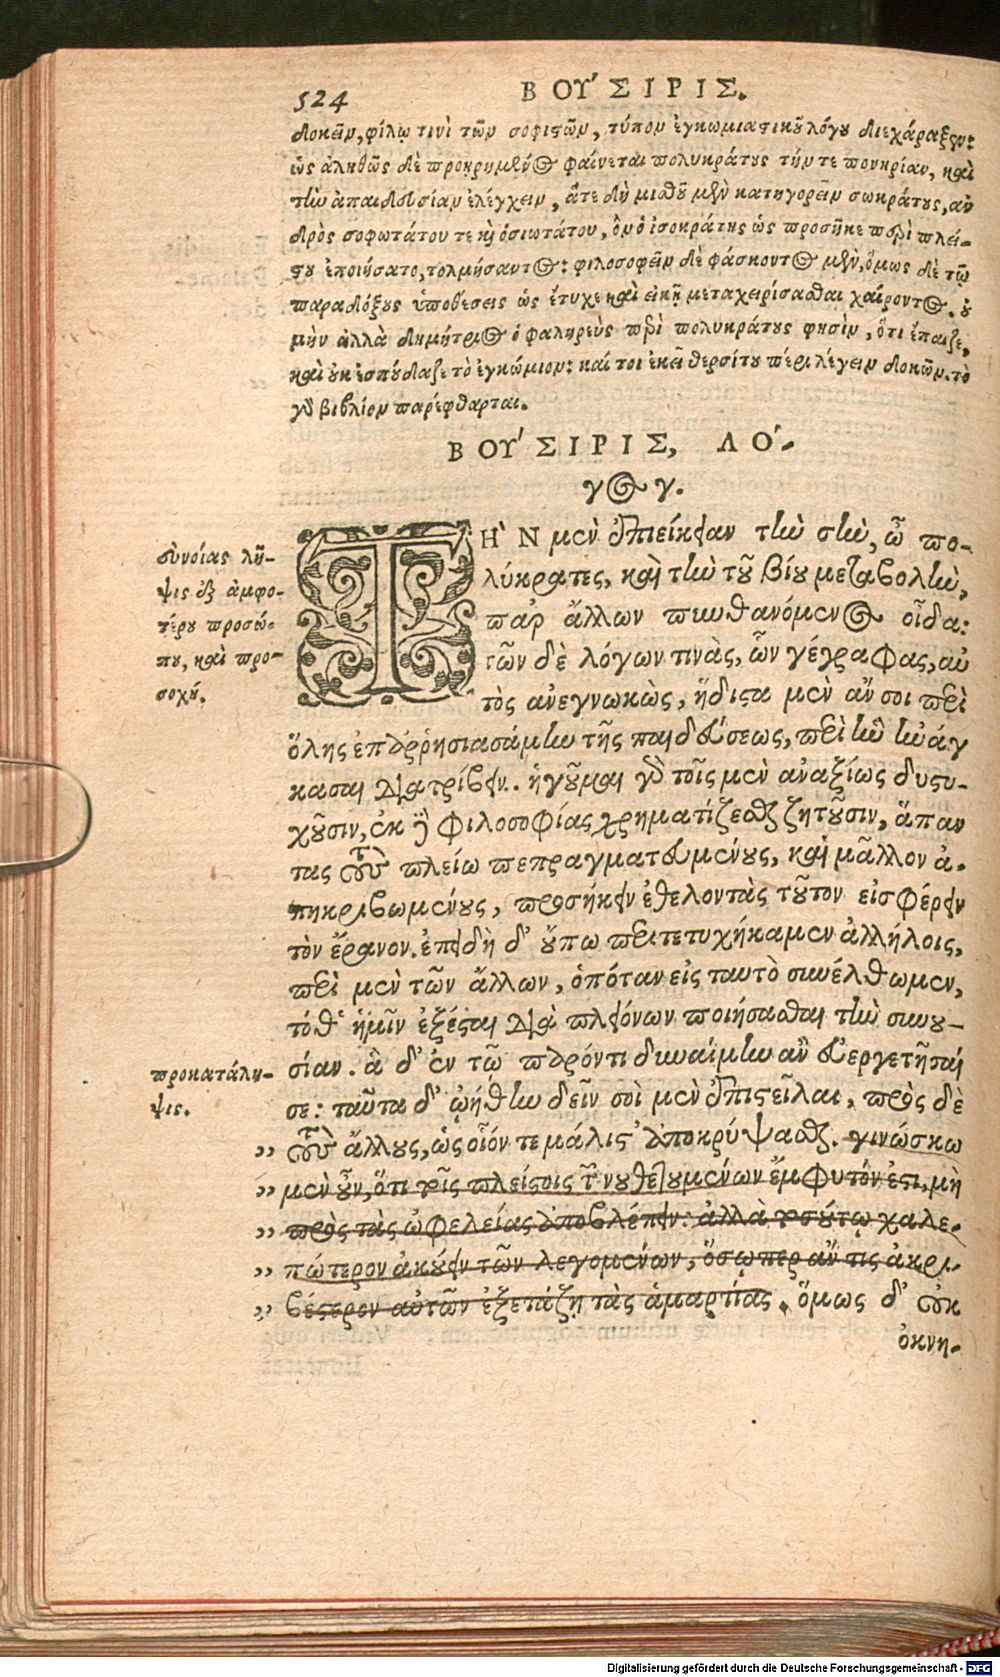 524
ΒΟΥ΄ΣΙΡΙΣ.
δοκεῖν, φίλῳ τινὶ τῶν σοφιστῶν, τύπον ἐγκωμιαστικοῦ λόγου διεχάραξεν:
ὡς ἀληθῶς δὲ προῃρημένος φαίνεται πολυκράτους τήν τε πονηρίαν, καὶ
τὴν ἀπαιδευσίαν ἐλέγχειν, ἅτε δὴ μισθοῦ μὲν κατηγορεῖν σωκράτους, ἀν
δρὸς σοφωτάτου τε καὶ ὁσιωτάτου, ὃν ὁ ἰσοκράτης ὡς προσῆκε περὶ πλεί-
στου ἐποιήσατο, τολμήσαντος: φιλοσοφεῖν δὲ φάσκοντος μὲν, ὅμως δὲ τῷ
παραδόξους ὑποθέσεις ὡς ἔτυχε καὶ εἰκῇ μεταχειρίσασθαι χαίροντος. οὐ
μὴν ἀλλὰ δημήτριος ὁ φαληρεὺς περὶ πολυκράτους φησὶν, ὅτι ἔπαιζε,
καὶ οὐκ ἐσπούδαζε τὸ ἐγκώμιον: καί τοι ἐκεῖ θερσίτου πέρι λέγειν δοκῶν. τὸ
γὰρ βιβλίον παρέφθαρται.
ΒΟΥ΄ΣΙΡΙΣ, ΛΟ΄-
γος γ.
ΤΗ`Ν μὲν ἐπιείκειαν τὴν σὴν, ὦ πο-
λύκρατες, καὶ τὴν τοῦ βίου μεταβολὴν,
παρ ἄλλων πυνθανόμενος οἶδα:
τῶν δὲ λόγων τινὰς, ὧν γέγραφας, αὐ
τὸς ἀνεγνωκὼς, ἥδιστα μὲν ἄν σοι περὶ
ὅλης ἐπαρρησιασάμην τῆς παιδεύσεως, περὶ ἣν ἠνάγ
κασαι διατρίβειν. ἡγοῦμαι γὰρ τοῖς μὲν ἀναξίως δυστυ-
χοῦσιν, ἐκ δὲ φιλοσοφίας χρηματίζεσθαι ζητοῦσιν, ἅπαν
τας τοὺς πλείω πεπραγματευμένους, καὶ μᾶλλον ἀ-
πηκριβωμένους, προσήκειν ἐθελοντὰς τοῦτον εἰσφέρειν
τὸν ἔρανον. ἐπειδὴ δ' οὔπω περιτετυχήκαμεν ἀλλήλοις,
περὶ μὲν τῶν ἄλλων, ὁπόταν εἰς ταυτὸ συνέλθωμεν,
τόθ' ἡμῖν ἐξέσται διὰ πλειόνων ποιήσασθαι τὴν συνου-
σίαν. ἃ δ' ἐν τῷ παρόντι δυναίμην ἂν εὐεργετῆσαί
σε: ταῦτα δ' ᾠήθην δεῖν σοὶ μὲν ἐπιστεῖλαι, πρὸς δὲ
,, τοὺς ἄλλους, ὡς οἷόν τε μάλιστ' ἀποκρύψασθαι. γινώσκω
,, μὲν οὖν, ὅτι τοῖς πλείστοις τῶν νουθετουμένων ἔμφυτόν ἐστι, μὴ
,, πρὸς τὰς ὠφελείας ἀποβλέπειν: ἀλλὰ τοσούτῳ χαλε-
,, πώτερον ἀκούειν τῶν λεγομένων, ὅσῳπερ ἄν τις ἀκρι-
,, βέστερον αὐτῶν ἐξετάζῃ τὰς ἁμαρτίας. ὅμως δ' οὐκ
ὀκνη-
συνοίας λῆ-
ψις ἐξ ἀμφο-
τέρου προσώ-
που, καὶ προ-
σοχή.
προκατάλη-
ψις.
Digitalisierung gefördert durch die Deutsche Forschungsgemeinschaft - DFG